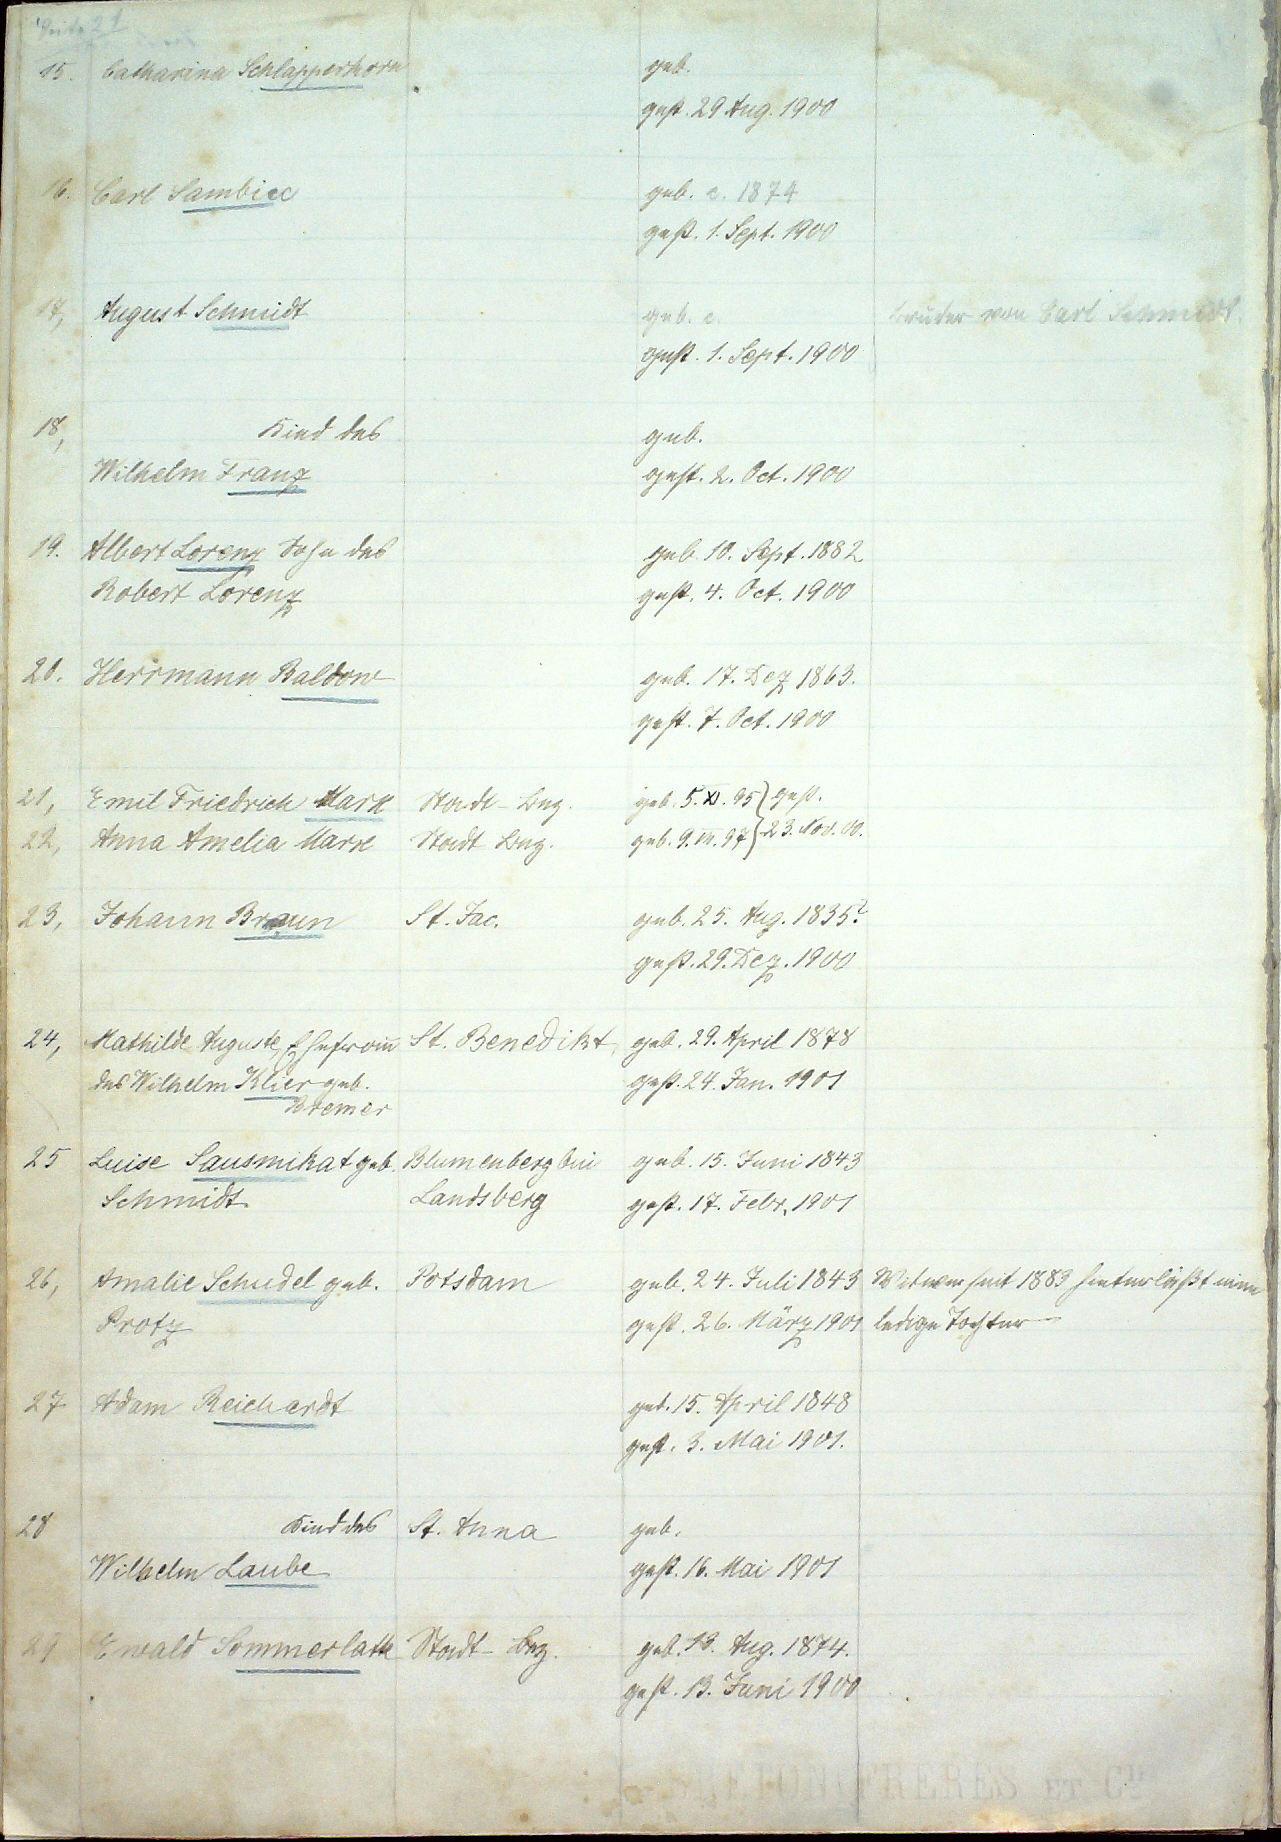 Seite 21
15. Catharina Schlapperhorn geb.
gest. 29 Aug. 1900
16. Carl Sambiec geb. c. 1874
gest. 1. Sept. 1900
17, August Schmidt geb. c. Bruder von Carl Schmidt.
gest. 1. Sept. 1900
18, Kind des geb.
Wilhelm Franz gest. 2. Oct. 1900
19. Albert Lorenz Sohn des geb. 10. Sept. 1882
Robert Lorenz gest. 4. Oct. 1900
20. Herrmann Baldow geb. 17. Dez 1863.
gest. 7. Oct. 1900
21, Emil Friedrich Mark Stadt-Bez. geb. 5. XI. 95 } gest.
22, Anna Amelia Mark Stadt Bez. geb. 9. 97 } 23. Nov. 00.
23, Johann Braun St. Jac. geb. 25. Aug. 1835?
gest. 29. Dez. 1900
24, Mathilde Auguste, Ehefrau St. Benedikt, geb. 29. April 1878
des Wilhelm Klier geb. gest. 24. Jan. 1901
Bremer
25 Luise Sausmikat geb. Blumenberg bei geb. 15. Juni 1843
Schmidt Landsberg gest. 17. Febr. 1901
26, Amalie Schudel geb. Potsdam geb. 24. Juli 1843 Witwe seit 1883 hinterläßt eine
Protz gest. 26. März 1901 ledige Tochter
27 Adam Reichardt geb. 15. April 1848
gest. 3. Mai 1901.
28 Kind des St. Anna geb.
Wilhelm Laube gest. 16. Mai 1901
29 Ewald Sommerlatte Stadt-Bez. geb. 13. Aug. 1874.
gest. 13. Juni 1900
FRERES ET Cie